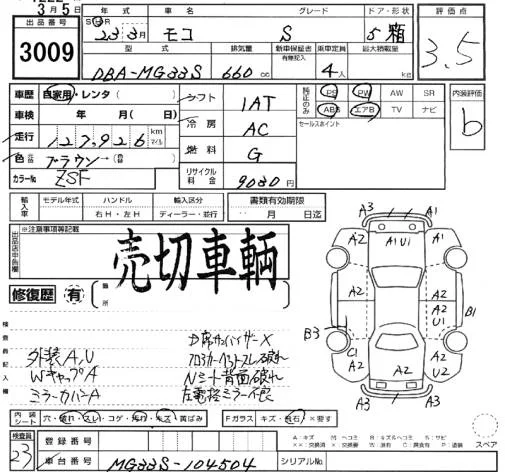 3月5日
出品番号
3009
年式 グレード ドア・形状
23年3月 モコ S 5 箱
型式 排気量 新車保証書 有無記入 乗車定員 最大積載量
DBA-MG33S 660cc 4人 kg
評価点
3.5
車歴 自家用・レンタ( )
車検 年 月( 日)
走行 127,926 km マイル
色 ブラウン
カラーNo ZSF
シフト 1AT
冷房 AC
燃料 G
リサイクル料金 9030円
純正のみ PS PW AW SR
ABS エアB TV ナビ
セールスポイント
内装評価
b
輸入車 モデル年式 ハンドル 輸入区分 書類有効期限
右H・左H ディーラー・並行 月 日迄
出品店申告欄 ※注意事項等記載
売切車輌
修復歴 有 箇所
検査員記入欄
外装A,U
WキャップA
ミラーカバーA
D席サンバイザーX
Nシート背面破れ
左電格ミラー不良
A3 A1
A2 A1U1 A2
A2 A2
A2
A2 U1 B1
B3
C1
A2 A2 U2
A3 A3
内装シート 穴・破れ・スレ・コゲ・汚れ・キズ・黄ばみ
Fガラス キズ・飛石・X要す
検査員 23
登録番号
車台番号 MG33S-104504 シリアルNo
スペア